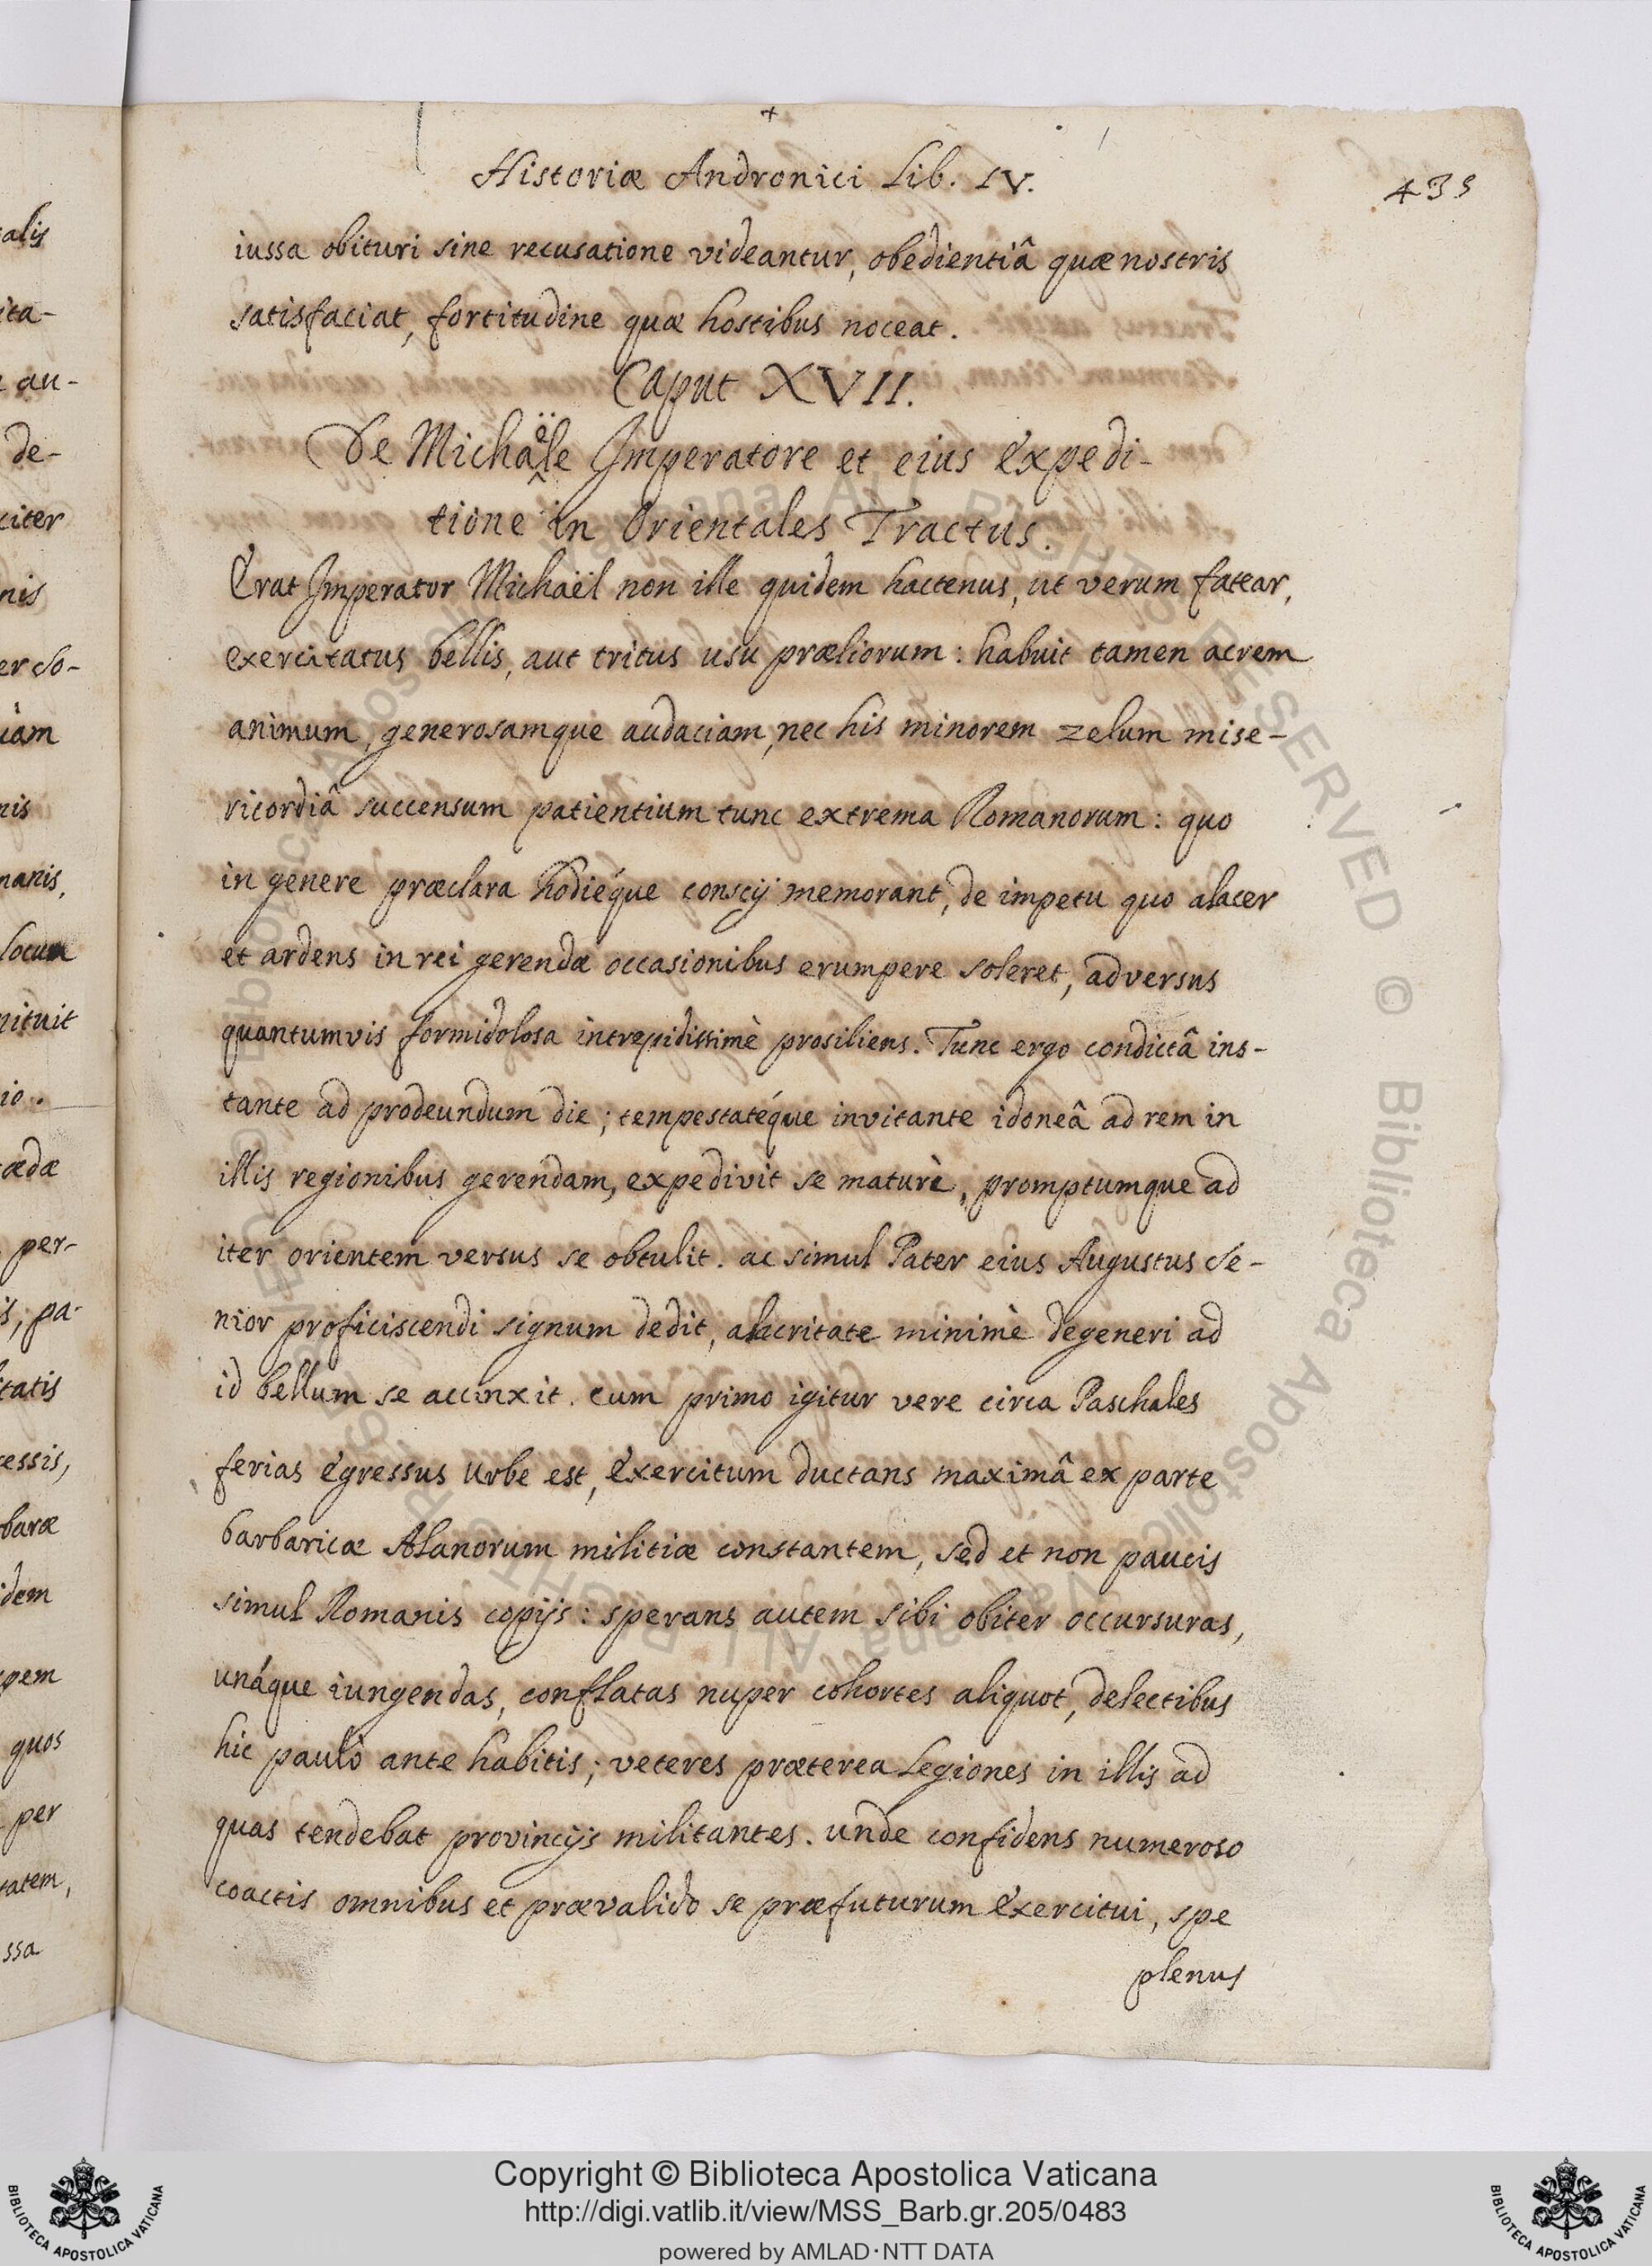 Historiæ Andronici Lib. IV.
435
iussa obituri sine recusatione videantur, obedientiâ quæ nostris
satisfaciat, fortitudine quæ hostibus noceat.
Caput XVII.
De Michaële Imperatore et eius expedi-
tione in Orientales Tractus.
Erat Imperator Michaël non ille quidem hactenus, ut verum fatear,
exercitatus bellis, aut tritus usu præliorum: habuit tamen acrem
animum, generosamque audaciam, nec his minorem zelum mise-
ricordiâ succensum patientium tunc extrema Romanorum: quo
in genere præclara hodiéque conscij memorant, de impetu quo alacer
et ardens in rei gerendæ occasionibus erumpere soleret, adversus
quantumvis formidolosa intrepidissimè prosiliens. Tunc ergo condictâ ins-
tante ad prodeundum die; tempestatéque invitante idoneâ ad rem in
illis regionibus gerendam, expedivit se maturè, promptumque ad
iter orientem versus se obtulit. ac simul Pater eius Augustus Se-
nior proficiscendi signum dedit, alacritate minimè degeneri ad
id bellum se accinxit. cum primo igitur vere circa Paschales
ferias egressus Urbe est, exercitum ductans maximâ ex parte
barbaricæ Alanorum militiæ constantem, sed et non paucis
simul Romanis copijs: sperans autem sibi obiter occursuras,
unáque iungendas, conflatas nuper cohortes aliquot, delectibus
hic paulò ante habitis; veteres præterea Legiones in illis ad
quas tendebat provincijs militantes. unde confidens numeroso
coactis omnibus et prævalido se præfuturum exercitui, spe
plenus
alis
ita-
au-
de-
citer
nis
er So-
uàm
nis
manis,
locum
nituit
io.
ædæ
per-
is, pa-
tatis
essis,
baræ
idem
pem
quos
per
tatem,
ssa
Copyright © Biblioteca Apostolica Vaticana
http://digi.vatlib.it/view/MSS_Barb.gr.205/0483
powered by AMLAD·NTT DATA
BIBLIOTECA APOSTOLICA VATICANA
BIBLIOTECA APOSTOLICA VATICANA